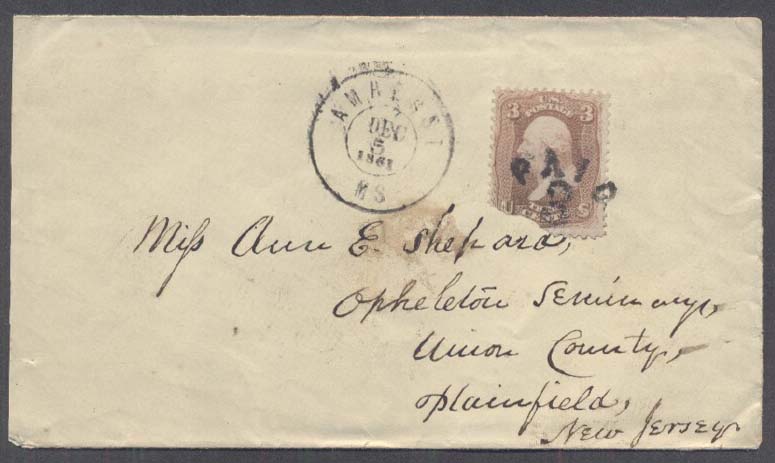 AMHERST
DEC
5
1861
MS
3 U.S. POSTAGE 3
PAID
3
U S
Miss Ann E. Shepard,
Opheleton Seminary,
Union County,
Plainfield,
New Jersey